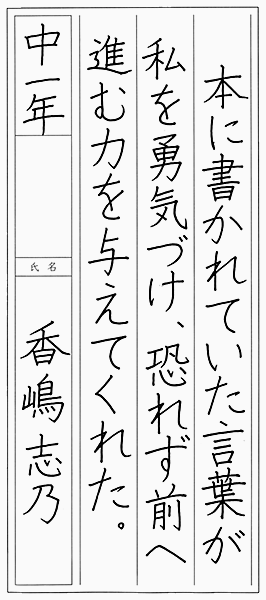 本に書かれていた言葉が
私を勇気づけ、恐れず前へ
進む力を与えてくれた。
中一年
氏名
香嶋志乃